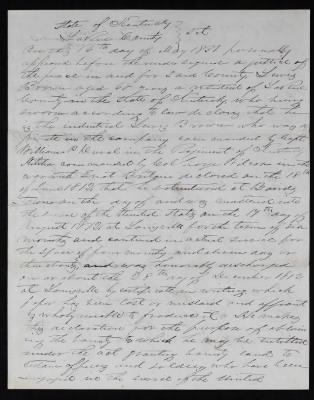 State of Kentucky
Larue County } Sct
On this 16th day of May 1851 personally
appeared before the undersigned a justice of
the peace in and for said County Lewis
Brown aged 60 years a resident of Larue
County in the State of Kentucky who being
sworn according to law declares that he
is the identical Lewis Brown who was a
private in the company commanded by Capt
William in the Regiment of Kentucky
Militia commanded by Col Wilcox in the
war with Great Britain declared on the 18th
of June 1812 that he volunteered at Bards
Town on the day of and was mustered into
the service of the United States on the 17th day of
August 1812 at Louisville for the term of six
months and continued in actual service for the
space of four months and eleven days in
that war, and was honorably discharged
on about the day of December 1812
at Louisville by certificate in writing which
paper has been lost or mislaid and affiant
is wholly unable to produce it. He makes
this declaration for the purpose of obtain
ing the bounty to which he may be entitled
under the act granting bounty land to
certain officers and soldiers who have been
engaged in the service of the United